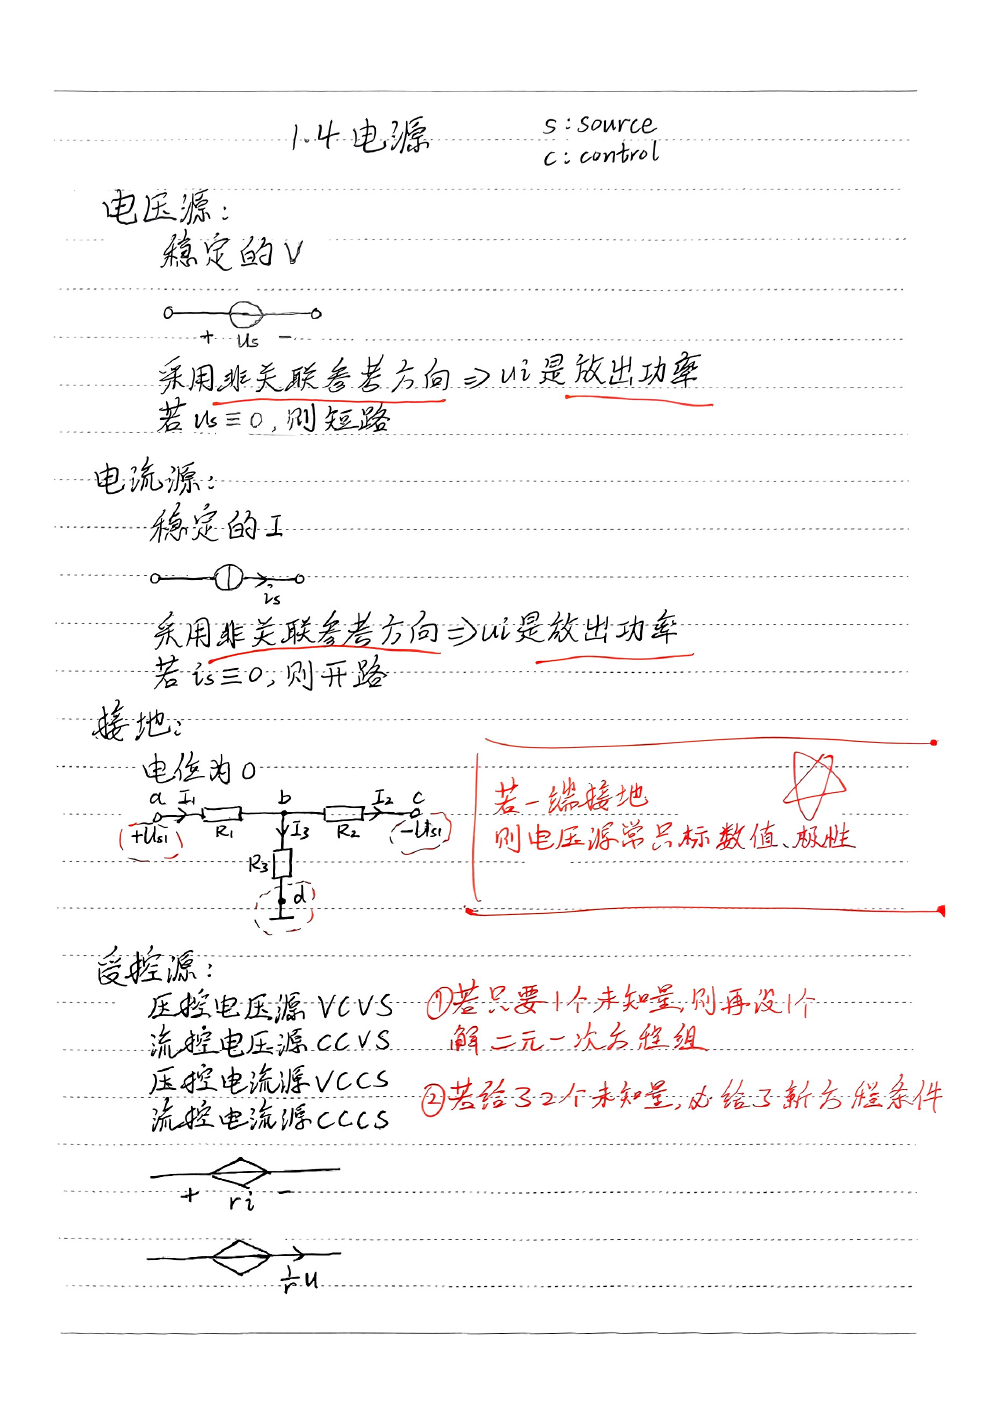 1.4 电源
s: source
c: control
电压源:
稳定的V
+ us -
采用非关联参考方向⇒ui是放出功率
若us≡0,则短路
电流源:
稳定的I
is
采用非关联参考方向⇒ui是放出功率
若is≡0,则开路
接地:
电位为0
a I1 b I2 c
+Us1 R1 I3 R2 -Us1
R3
d
若一端接地
则电压源常只标数值、极性
受控源:
压控电压源 VCVS
流控电压源 CCVS
压控电流源 VCCS
流控电流源 CCCS
①若只要1个未知量,则再设1个
解二元一次方程组
②若给了2个未知量,必给了新方程条件
+ ri -
1/r u